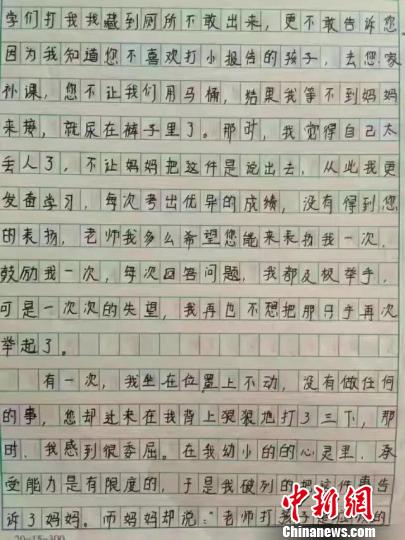 学们打我我藏到厕所不敢出来，更不敢告诉您.
因为我知道您不喜欢打小报告的孩子，去您家
补课，您不让我们用马桶，结果我等不到妈妈
来接，就尿在裤子里了。那时，我觉得自己太
丢人了，不让妈妈把这件是说出去，从此我更
发奋学习，每次考出优异的成绩，没有得到您
的表扬，老师我多么希望您能来表扬我一次，
鼓励我一次，每次回答问题，我都及极举手，
可是一次次的失望，我再也不想把那只手再次
举起了。
有一次，我坐在位置上不动，没有做任何
的事，您却进来在我背上狠狠地打了三下，那
时、我感到很委屈。在我幼小的的心灵里，承
受能力是有限度的，于是我破列的把这件事告
诉了妈妈。而妈妈却说：“老师打孩子是
的
20×15=300
中新网
Chinanews.com